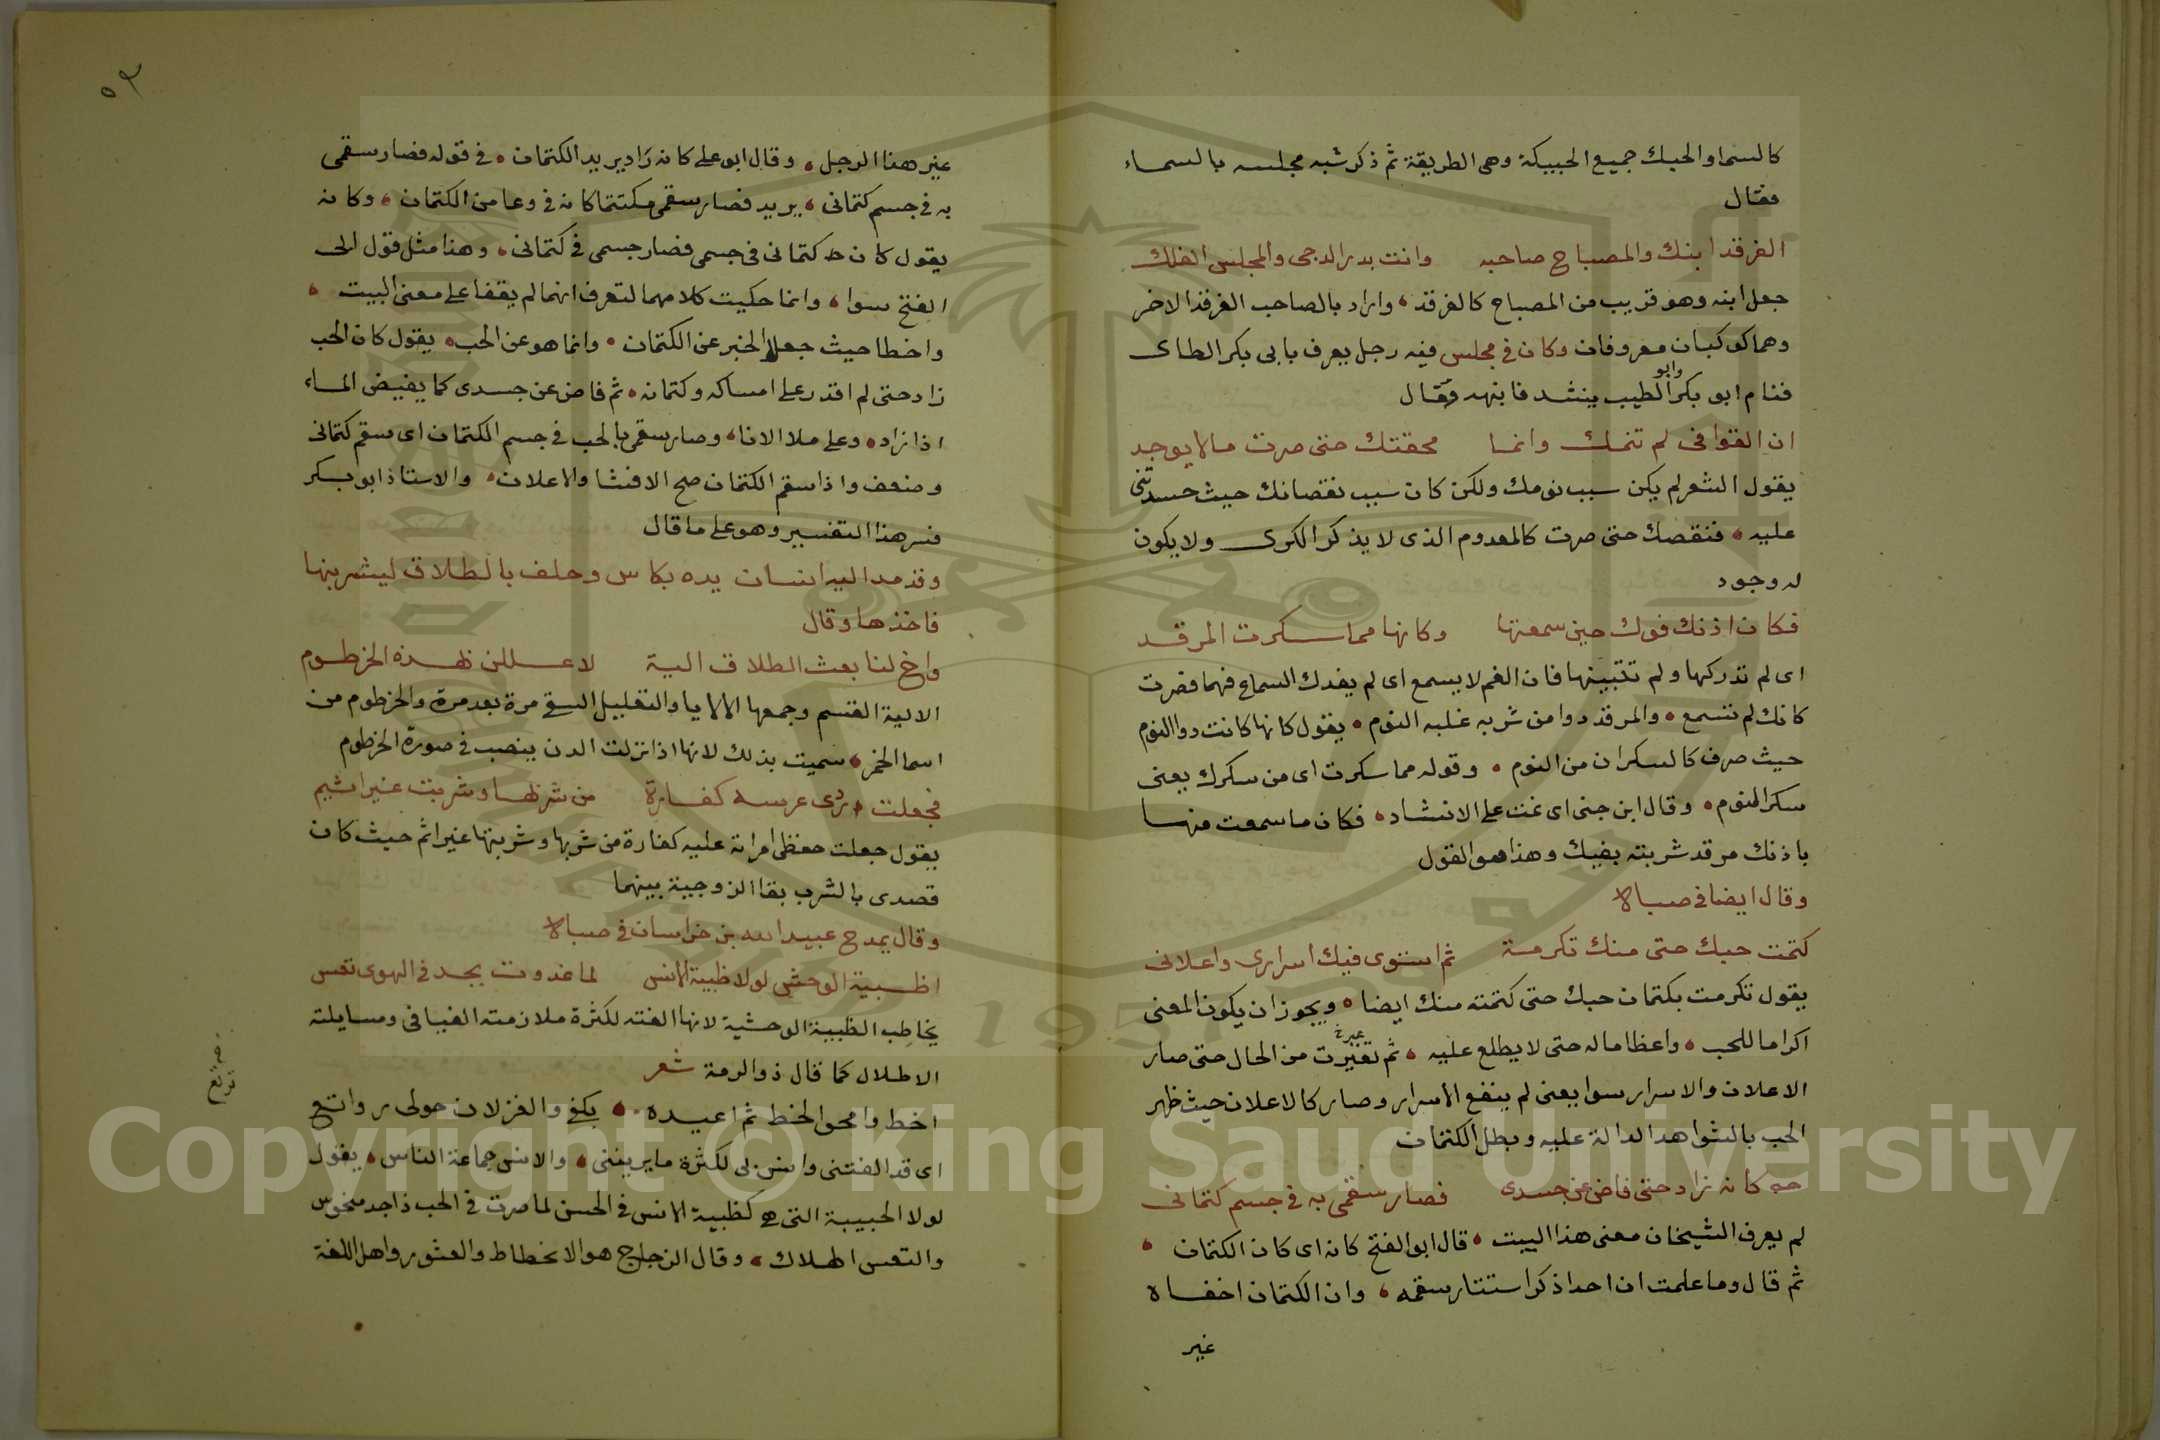 كالسما والحبك جميع الحبيكة وهى الطريقة ثم ذكر شبه مجلسه بالسماء
فقال
الفرقد ابنك والمصباح صاحبه وانت بدر الدجى والمجلس الفلك
جعل ابنه وهو قريب من المصباح كالفرقد واراد بالصاحب الفرقد الاخر
وهما كوكبان معروفان وكان فى مجلس فيه رجل يعرف بابى بكر الطاى
فنام ابو بكر وابو الطيب ينشد فانبهه وقال
ان القوافى لم تنمك وانما محقتك حتى صرت مالا يوجد
يقول الشعر لم يكن سبب نومك ولكن كان سبب نقصانك حيث حسدتنى
عليه فنقصك حتى صرت كالمعدوم الذى لا يذكر الكرى ولا يكون
له وجود
فكان اذنك فوك حين سمعتها وكانها مما سكرت المرقد
اى لم تدركها ولم تتبينها فان الفم لا يسمع اى لم يفدك السماع فهما فصرت
كانك لم تسمع والمرقد دوا من شربه غلبه النوم يقول كانها كانت دوا النوم
حيث صرف كالسكران من النوم وقوله مما سكرت اى من سكرك يعنى
سكر النوم وقال ابن جنى اى نمت على الانشاد فكان ما سمعت منها
باذنك مرقد شربته بفيك وهذا هو القول
وقال ايضا فى صباه
كتمت حبك حتى منك تكرمة ثم استوى فيك اسرارى واعلانى
يقول تكرمت بكتمان حبك حتى كتمته منك ايضا ويجوز ان يكون المعنى
اكراما للحب واعظاما له حتى لا يطلع عليه ثم تغيرت من الحال حتى صار
الاعلان والاسرار سوا يعنى لم ينفع الاسرار وصار كالاعلان حيث ظهر
الحب بالشواهد الدالة عليه وبطل الكتمان
كانه زاد حتى فاض عن جسدى فصار سقمى به فى جسم كتمانى
لم يعرف الشيخان معنى هذا البيت قال ابو الفتح كانه اى كان الكتمان
ثم قال وما علمت ان احدا ذكر استتار سقمه وان الكتمان اخفاه
غير
٥٩
غير هذا الرجل وقال ابو على كانه زاد يريد الكتمان فى قوله فصار سقمى
به فى جسم كتمانى يريد فصار سقمى مكتتما كانه فى وعا من الكتمان وكانه
يقول كان كتمانى فى جسمى فصار جسمى فى كتمانى وهذا مثل قول ابى
الفتح سوا وانما حكيت كلامهما لتعرف انهما لم يقفا على معنى البيت
واخطا حيث جعلا الخبر عن الكتمان وانما هو عن الحب يقول كان الحب
زاد حتى لم اقدر على امساكه وكتمانه ثم فاض عن جسدى كما يفيض الماء
اذا زاد وعلى ملا الانا وصار سقمى بالحب فى جسم الكتمان اى سقم كتمانى
وضعف واذا سقم الكتمان صح الافشا والاعلان والاستاذ ابو بكر
فسر هذا التفسير وهو على ما قال
وقد مد اليه انسان يده بكاس وحلف بالطلاق ليشربنها
فاخذها وقال
واخ لنا بعث الطلاق الية لاعللن بهذه الخرطوم
الالية القسم وجمعها الالايا والتعليل السقى مرة بعد مرة والخرطوم من
اسما الخمر سميت بذلك لانها اذا نزلت الدن ينصب فى صورة الخرطوم
فجعلت ردى عرسه كفارة من شربها وشربت غير اثيم
يقول جعلت حفظى امراته عليه كفارة من شربها وشربتها غير اثم حيث كان
قصدى بالشرب بقا الزوجية بينهما
وقال يمدح عبيد الله بن خراسان فى صباه
اظبية الوحش لولا ظبية الانس لما غدوت بجد فى الهوى تعس
يخاطب الظبية الوحشية لانها الفته لكثرة ملازمته الفيافى ومسايلته
الاطلال كما قال ذو الرمة شعر
اخط وامحو الخط ثم اعيده بكفى والغزلان حولى رواتع
ترتع
اى قد الفتنى وانس بى لكثرة ما يريننى والانس جماعة الناس يقول
لولا الحبيبة التى هى كظبية الانس فى الحسن لما صرت فى الحب ذا جد منحوس
والتعس الهلاك وقال الزجاج هو الانحطاط والعثور واهل اللغة
Copyright © King Saud University